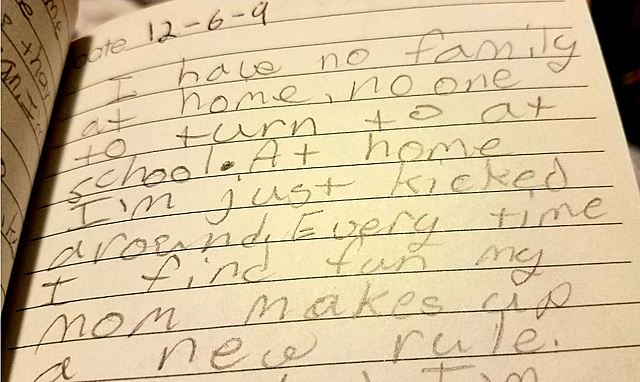 date 12-6-9
I have no family
at home, no one
to turn to at
school. At home
I'm just kicked
around. Every time
I find fun my
mom makes up
a new rule.
I'm